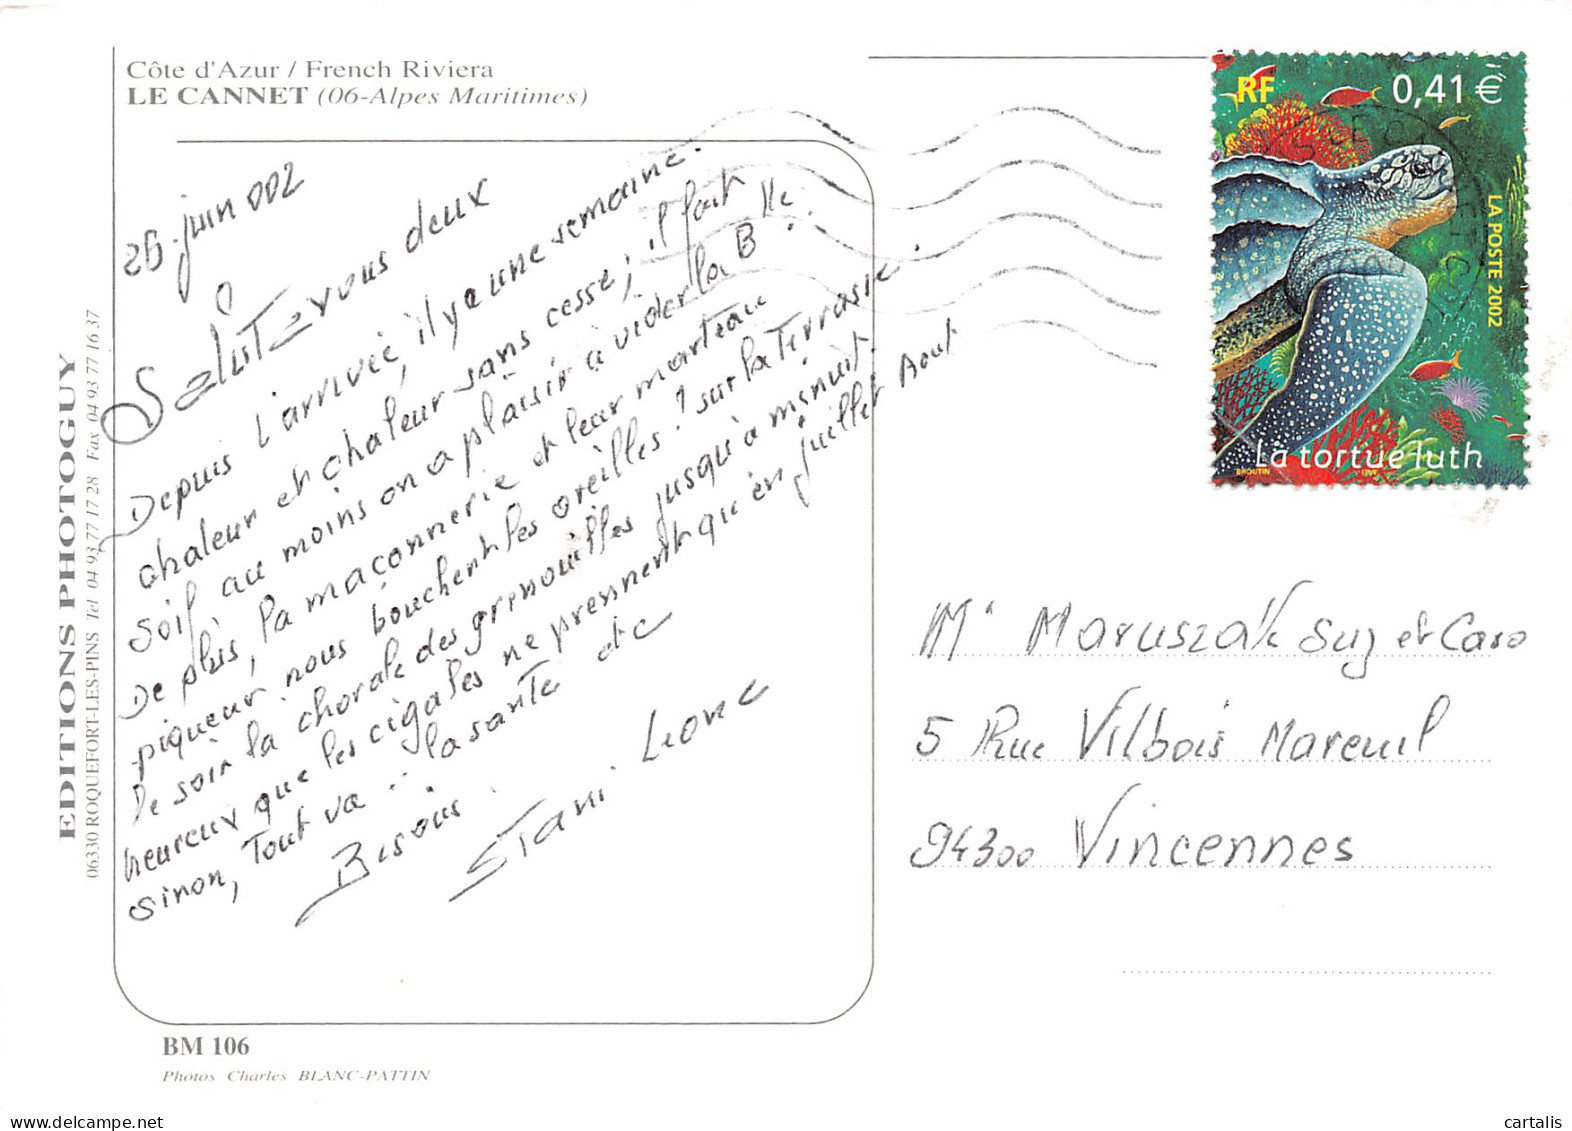 Côte d'Azur / French Riviera
LE CANNET (06-Alpes Maritimes)
26 juin 002
Salut à vous deux
Depuis l'arrivée, il y a une semaine.
chaleur et chaleur sans cesse; il fait
soif au moins on a plaisir à vider la Blle.
De plus, la maçonnerie et leur marteau
piqueur nous bouchent les oreilles! sur la terrasse.
Le soir la chorale des grenouilles jusqu'à minuit.
heureux que les cigales ne prennent qu'en juillet Aout
sinon, Tout va .. la santé etc
Bisous.
Stani Leone
EDITIONS PHOTOGUY
06330 ROQUEFORT-LES-PINS Tel 04 93 77 17 28 Fax 04 93 77 16 37
BM 106
Photos Charles BLANC-PATTIN
RF 0,41 €
LA POSTE 2002
La tortue luth
BROUTIN
ITVF
Mr Maruszak Suz et Caro
5 Rue Vilbois Mareuil
94300 Vincennes
cartalis